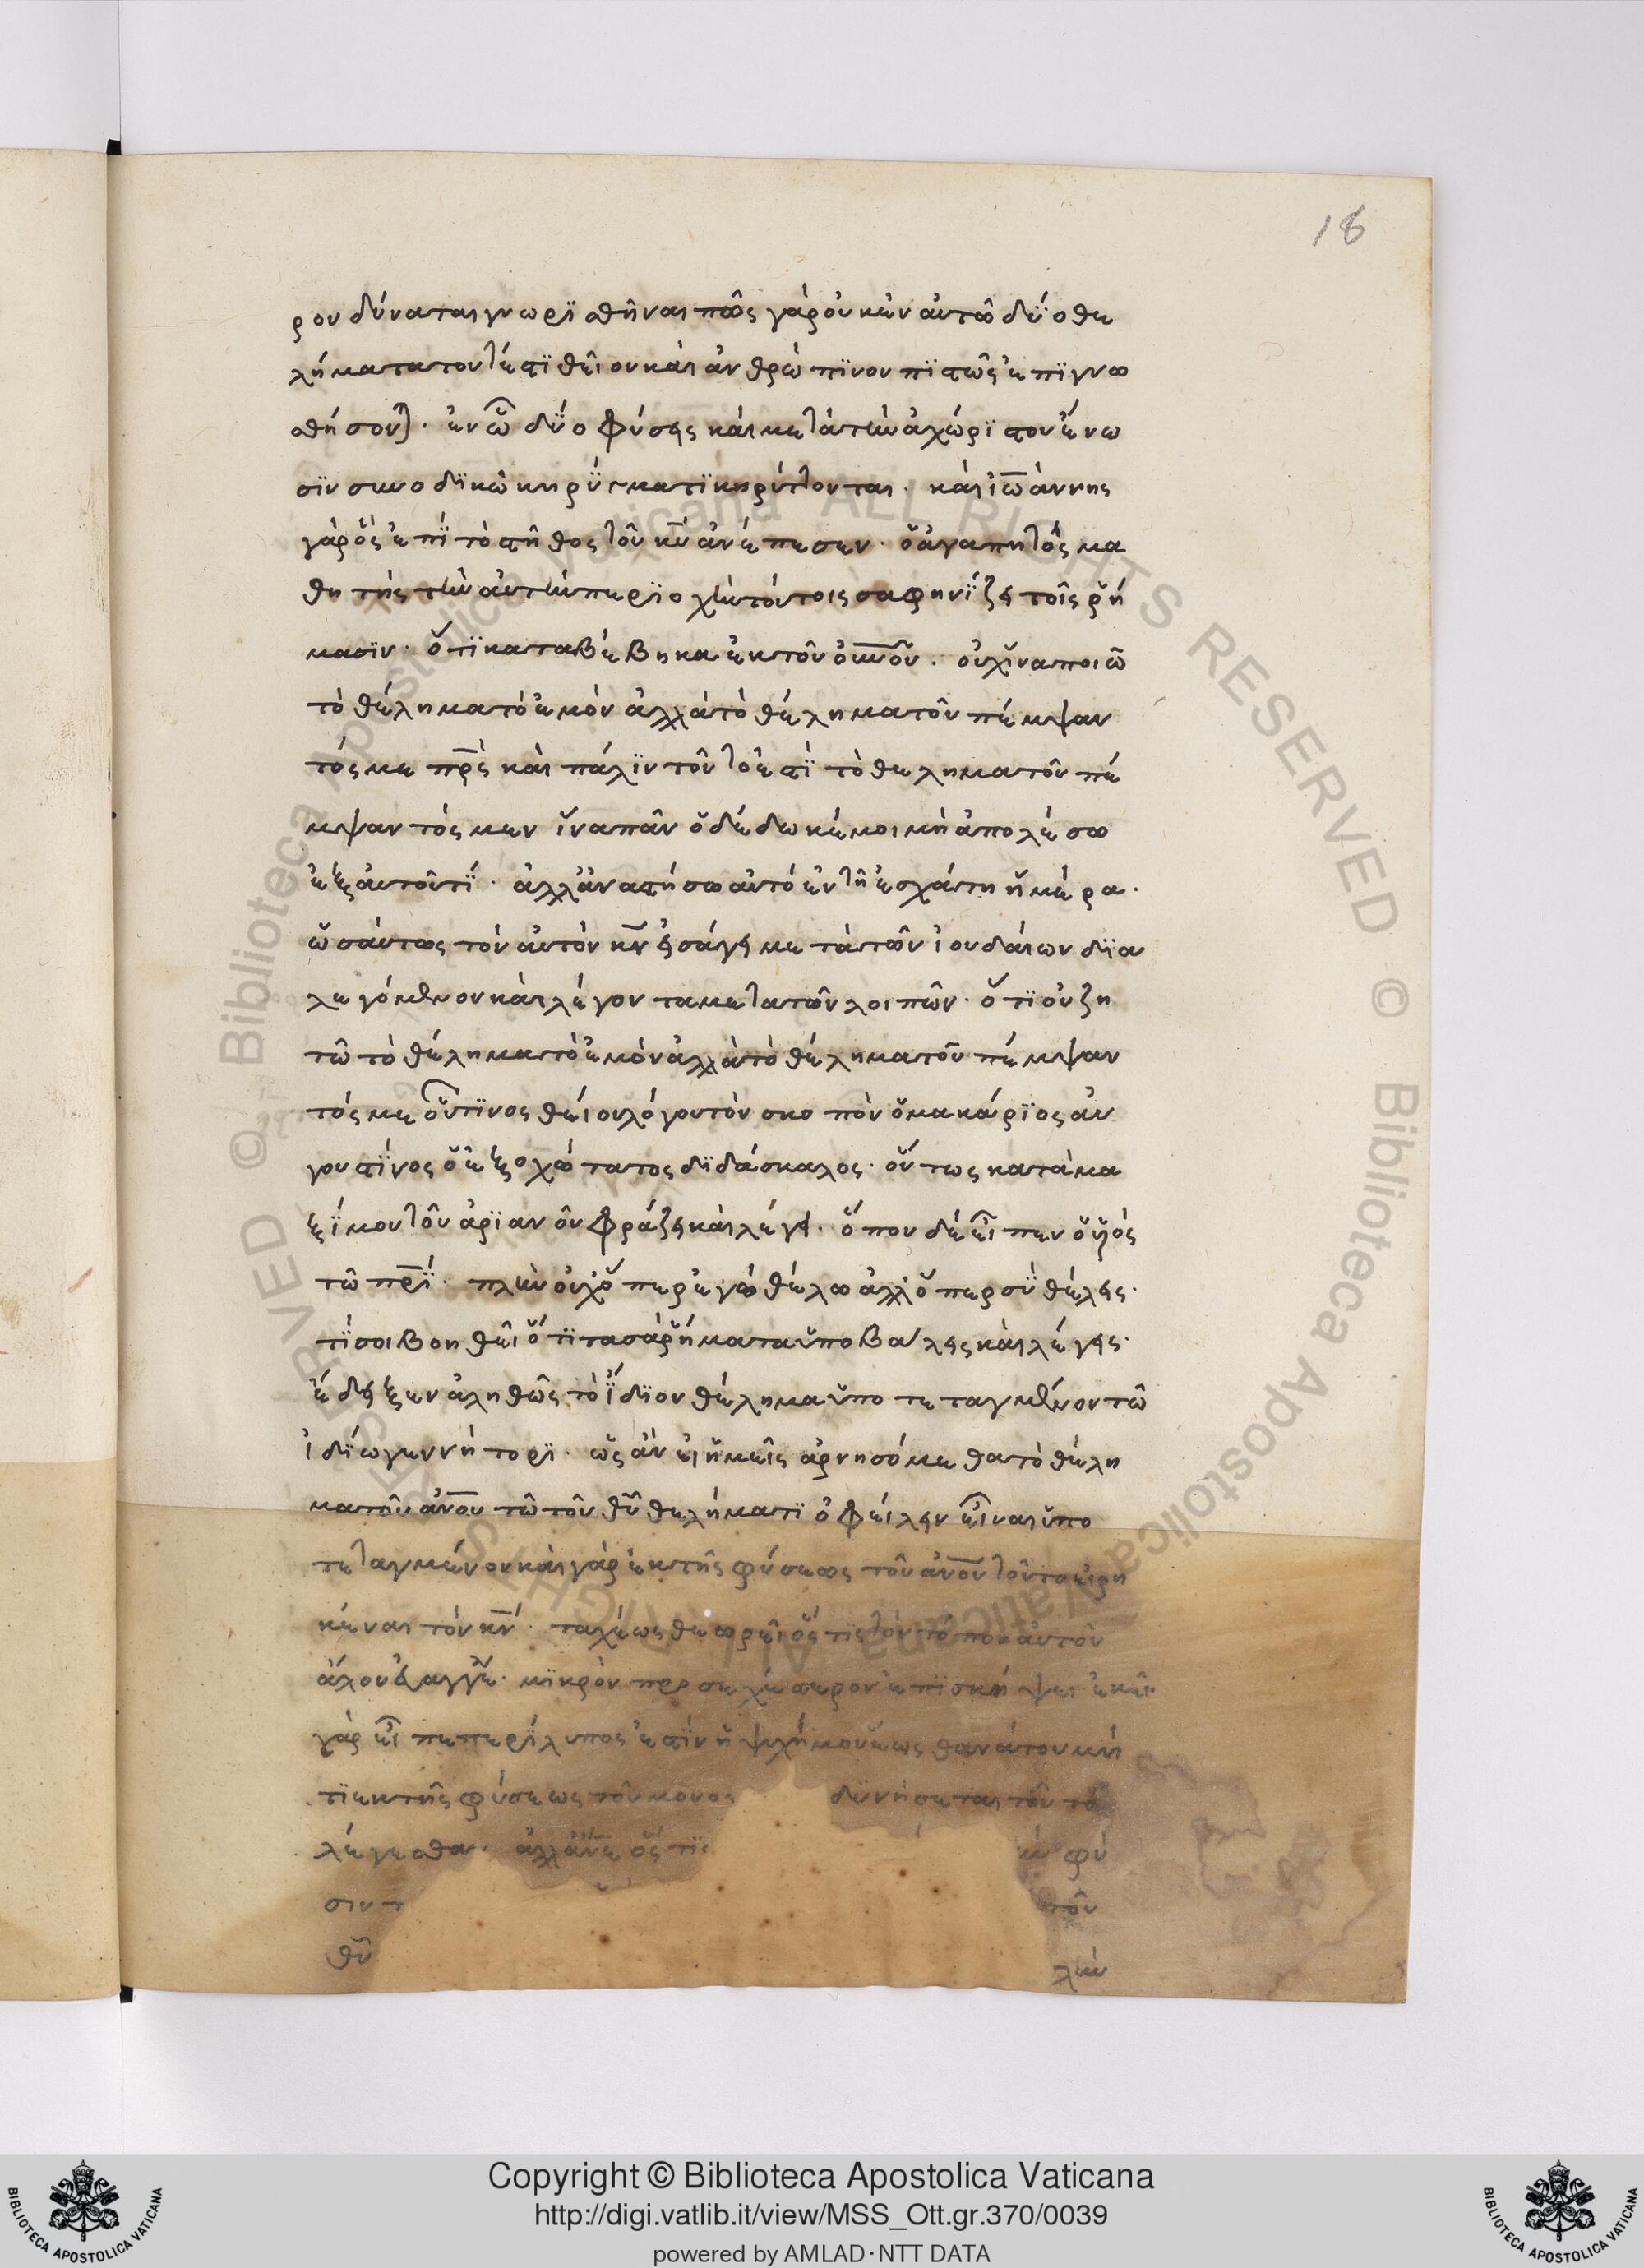 18
ρον δύναται γνωρϊσθῆναι πῶς γὰρ οὐκ ἐν αὐτῶ δύο θε
λήματα τουτέστϊ θεῖον καὶ ἀνθρώπϊνον πϊστῶς ἐπϊγνω
σθήσονται· ἐν ὧ δύο φύσεις καὶ μετὰ τὴν ἀχώρϊστον ἕνω
σϊν συνοδϊκῶ κηρύγματϊ κηρύττονται· καὶ ϊῶάννης
γὰρ ὃς ἐπὶ τὸ στῆθος τοῦ κυ ἀνέπεσεν· ὁ ἀγαπητὸς μα
θητὴς τὴν αὐτὴν περϊοχὴν τούτοις σαφηνίζει τοῖς ῥή
μασϊν· ὅτϊ καταβέβηκα ἐκ τοῦ οὐνοῦ· οὐχ ἵνα ποιῶ
τὸ θέλημα τὸ ἐμὸν ἀλλὰ τὸ θέλημα τοῦ πέμψαν
τός με πρς καὶ πάλϊν τοῦτο ἐστϊ τὸ θελημα τοῦ πέ
μψαντός μεν ἵνα πᾶν ὃ δέδωκέ μοι μὴ ἀπολέσω
ἐξ αὐτοῦ τϊ· ἀλλ' ἀναστήσω αὐτό ἐν τῆ ἐσχάτη ἡμέρα·
ὡσάυτως τὸν αὐτὸν κν εἰσάγει μετὰ τῶν ἰουδάιων δϊα
λεγόμενον καὶ λέγοντα μετα τῶν λοιπῶν· ὅτϊ οὐ ζη
τῶ τὸ θέλημα τὸ ἐμὸν ἀλλὰ τὸ θέλημα τοῦ πέμψαν
τός με οὗτϊνος θείου λόγου τὸν σκοπὸν ὁ μακάρϊος αυ
γουστῖνος ὁ ἐξοχώτατος δϊδάσκαλος· οὕτως κατὰ μα
ξΐμου τοῦ ἀρϊανοῦ φράζει καὶ λέγει· ὅπου δέ εἶπεν ὁ υἱὸς
τῶ πρΐ· πλὴν οὐχ ὅπερ ἐγώ θέλω ἀλλ' ὅπερ σὺ θέλεις·
τΐ σοι βοηθεῖ ὅτϊ τα σὰ ῥήματα ὑποβάλεις καὶ λέγεις·
ἔδειξεν ἀληθῶς τὸ ἴδϊον θέλημα ὑποτεταγμένον τῶ
ἰδΐω γεννήτορϊ· ὡς ἂν εἰ ἡμεῖς ἀρνησόμεθα τὸ θέλη
μα τοῦ ἀνου τῶ τοῦ θυ θελήματϊ ὀφείλειν εἶναι ὑπο
τεταγμένον καὶ γὰρ ἐκ τῆς φύσεως τοῦ ἀνου τοῦτο εἰρη
κέναι τὸν κν· ταχέως θεωρεῖ ὅς τϊς τὸν τόπον αὐτὸν
μϊκρὸν προσεχέστερον ἐπϊσκήψει ἐκεῖ
γὰρ εἶπε περΐλυπος ἐστϊν ἡ ψυχή μου ἕως θανάτου μή
τϊ ἐκ τῆς φύσεως τοῦ μόνου δυνήσεται τοῦ το
λέγεσθαι· ὅς τϊς φύ
σιν τοῦ
θυ λὴν
Copyright © Biblioteca Apostolica Vaticana
http://digi.vatlib.it/view/MSS_Ott.gr.370/0039
powered by AMLAD·NTT DATA